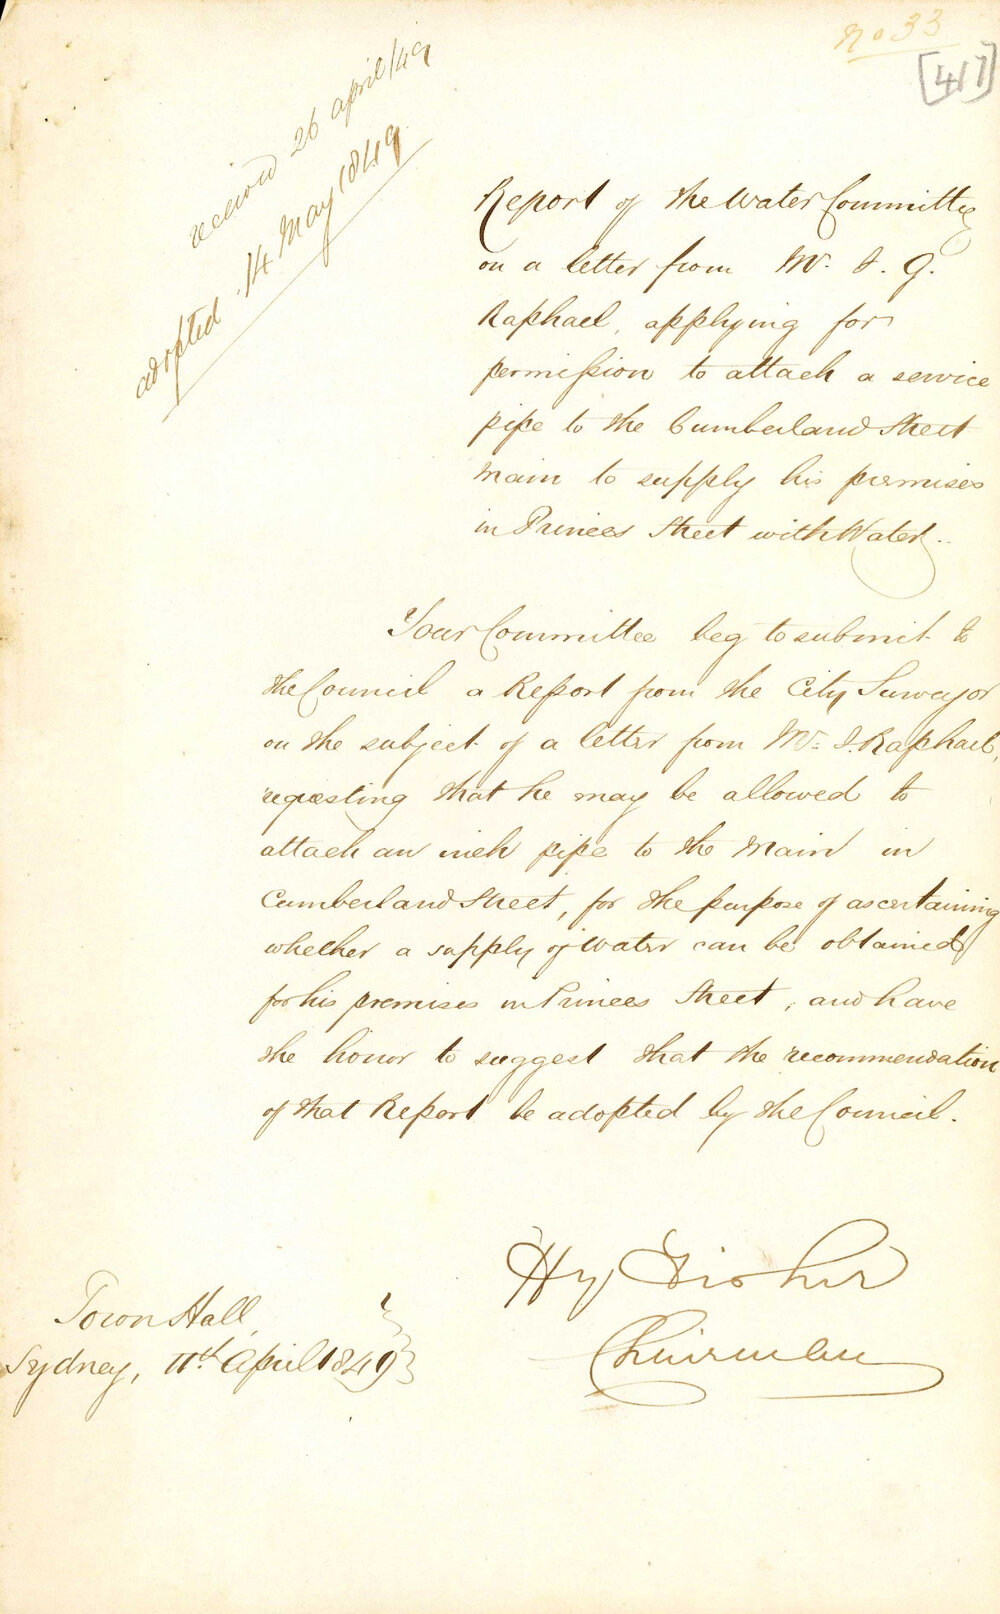 No 33
[417]
received 26 april/49
adopted 14 May 1849
Report of the Water Committee
on a letter from Mr. J. G.
Raphael, applying for
permission to attach a service
pipe to the Cumberland Street
Main to supply his premises
in Princes Street with Water.
Your Committee beg to submit to
the Council a Report from the City Surveyor
on the subject of a letter from Mr. J. Raphael,
requesting that he may be allowed to
attach an inch pipe to the Main in
Cumberland Street, for the purpose of ascertaining
whether a supply of Water can be obtained
for his premises in Princes Street, and have
the honor to suggest that the recommendation
of that Report be adopted by the Council.
Hy Fisher
Chairman
Town Hall,
Sydney, 11th April 1849